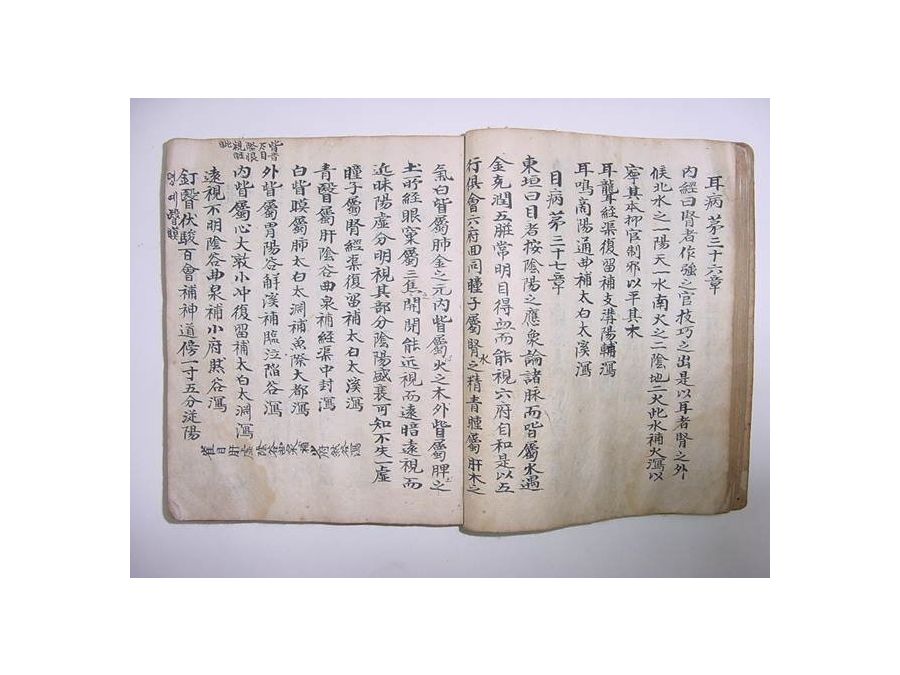 耳病第三十六章
內經曰腎者作强之官技巧之出是以耳者腎之外
候北水之一陽天一水南火之二陰地二火此水補火瀉以
寧其本抑官制邪以平其木
耳聾經渠復留補支溝陽輔瀉
耳鳴商陽通曲補太白太溪瀉
目病第三十七章
東垣曰目者按陰陽之應衆論諸脉而皆屬水遇
金克潤五臟常明目得血而能視六府自和是以五
行俱會六府面同瞳子屬腎水之精青瞳屬肝木之
氣白眥屬肺金之元內眥屬火之木外眥屬脾之
土所經眼窠屬三焦開開能近視而遠暗遠視而
近昧陽虛分明視其部分陰陽盛衰可知不失一虛
瞳子屬腎經渠復留補太白太溪瀉
青瞖屬肝陰谷曲泉補經渠中封瀉
白眥膜屬肺太白太淵補魚際大都瀉
外眥屬胃陽谷解溪補臨泣陷谷瀉
內眥屬心大敦小冲復留補太白太淵瀉
遠視不明陰谷曲泉補小府然谷瀉
釘瞖伏睃百會補神道傍一寸五分